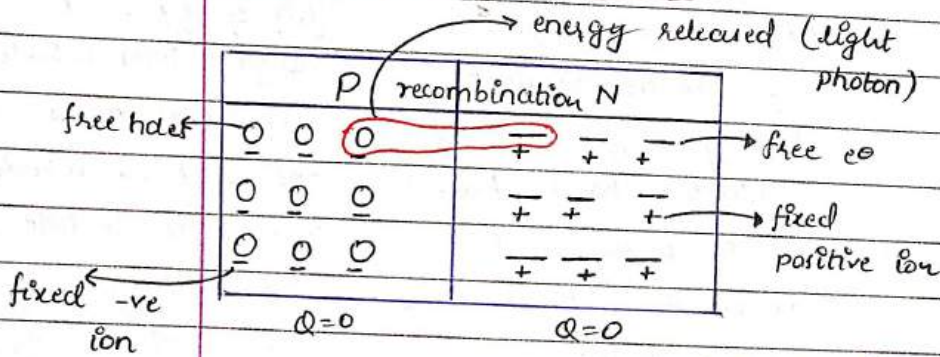 energy released (light
photon)
P recombination N
free holes
O O O — — —
— — — + + +
free e⊖
O O O — — —
— — — + + +
fixed
positive ion
O O O — — —
— — — + + +
fixed -ve
ion
Q=0 Q=0